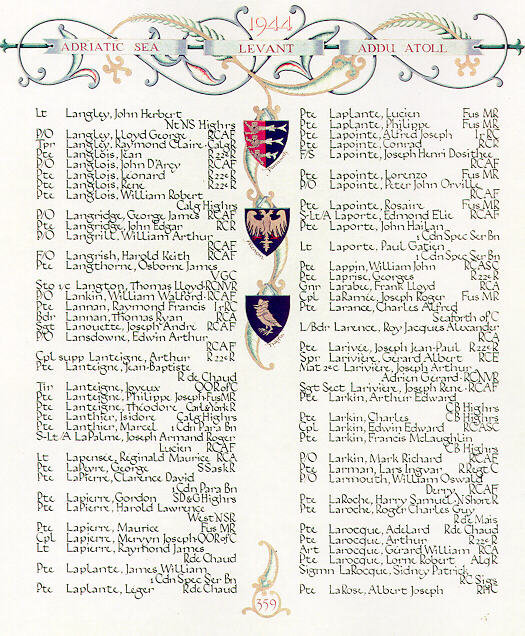 1944
ADRIATIC SEA LEVANT ADDU ATOLL
Lt Langley, John Herbert
Nt NS Highrs
P/O Langley, Lloyd George RCAF
Tpr Langley, Raymond Claire Calg R
Pte Langlois, Jean R 22e R
P/O Langlois, John D'Arcy RCAF
Pte Langlois, Léonard R 22e R
Pte Langlois, René R 22e R
Pte Langlois, William Robert
Calg Highrs
P/O Langridge, George James RCAF
Pte Langridge, John Edgar RCR
P/O Langrill, William Arthur
RCAF
F/O Langrish, Harold Keith RCAF
Pte Langthorne, Osborne James
VGC
Sto 1/c Langton, Thomas Lloyd RCNVR
P/O Lankin, William Walford RCAF
Pte Lannan, Raymond Francis Ir RC
Bdr Lannan, Thomas Ryan RCA
Sgt Lanouette, Joseph André RCAF
P/O Lansdowne, Edwin Arthur
RCAF
Cpl supp Lanteigne, Arthur R 22e R
Pte Lanteigne, Jean-Baptiste
R de Chaud
Tir Lanteigne, Joyeux QOR of C
Pte Lanteigne, Philippe Joseph Fus MR
Pte Lanteigne, Théodore Carl & York R
Pte Lanthier, Isidore Calg Highrs
Pte Lanthier, Marcel 1 Cdn Para Bn
S-Lt/A LaPalme, Joseph Armand Roger
Lucien RCAF
Lt Lapensée, Reginald Maurice RCA
Pte LaPeyre, George S Sask R
Pte LaPierre, Clarence David
1 Cdn Para Bn
Pte Lapierre, Gordon SD & G Highrs
Pte LaPierre, Harold Lawrence
West NSR
Pte Lapierre, Maurice Fus MR
Cpl Lapierre, Mervyn Joseph QOR of C
Lt Lapierre, Raymond James
R de Chaud
Pte Laplante, James William
1 Cdn Spec Ser Bn
Pte Laplante, Leger R de Chaud
Pte Laplante, Lucien Fus MR
Pte Laplante, Philippe Fus MR
Pte Lapointe, Alfred Joseph Ir RC
Pte Lapointe, Conrad RCR
F/S Lapointe, Joseph Henri Dosithée
RCAF
Pte Lapointe, Lorenzo Fus MR
P/O Lapointe, Peter John Orville
RCAF
Pte Lapointe, Rosaire Fus MR
S-Lt/A Laporte, Edmond Elie RCAF
Pte Laporte, John Hailan
1 Cdn Spec Ser Bn
Lt Laporte, Paul Gatien
1 Cdn Spec Ser Bn
Pte Lappin, William John RCASC
Pte Laprise, Georges R 22e R
Gnr Larabee, Frank Lloyd RCA
Cpl LaRamée, Joseph Roger Fus MR
Pte Larance, Charles Alfred
Seaforth of C
L/Bdr Larence, Roy Jacques Alexander
RCA
Pte Larivée, Joseph Jean-Paul R 22e R
Spr Larivière, Gérard Albert RCE
Mat 2e C Larivière, Joseph Arthur
Adrien Gérard RCNVR
Sgt Sect Larivière, Joseph René RCAF
Pte Larkin, Arthur Edward
CB Highrs
Pte Larkin, Charles CB Highrs
Cpl Larkin, Edwin Edward RCASC
Pte Larkin, Francis McLaughlin
CB Highrs
P/O Larkin, Mark Richard RCAF
Pte Larman, Lars Ingvar R Regt C
P/O Larmouth, William Oswald
Derry RCAF
Pte LaRoche, Harry Samuel N Shore R
Pte Laroche, Roger Charles Guy
R de Mais
Pte Larocque, Adelard R de Chaud
Pte Larocque, Arthur R 22e R
Art Larocque, Gérard William RCA
Pte Larocque, Lorne Robert Alq R
Sigmn LaRocque, Sidney Patrick
RC Sigs
Pte LaRose, Albert Joseph RMC
359